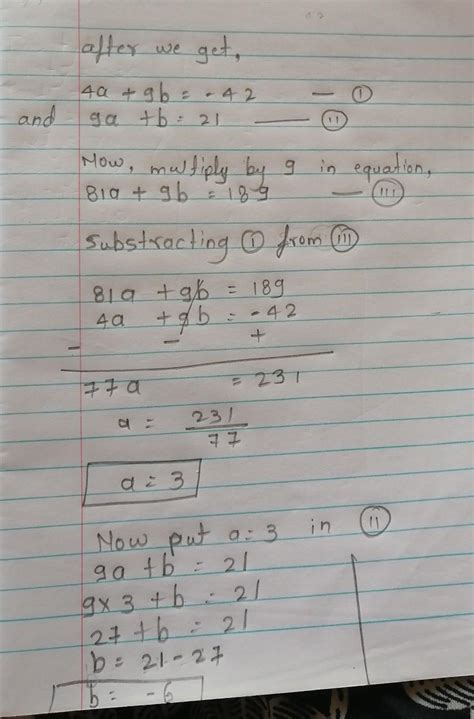 after we get,
4a + 9b = -42 — (i)
and 9a + b = 21 — (ii)
Now, multiply by 9 in equation,
81a + 9b = 189 — (iii)
Substracting (i) from (iii)
81a + 9b = 189
4a + 9b = -42
- - +
77a = 231
a = 231/77
a = 3
Now put a = 3 in (ii)
9a + b = 21
9x3 + b = 21
27 + b = 21
b = 21-27
b = -6